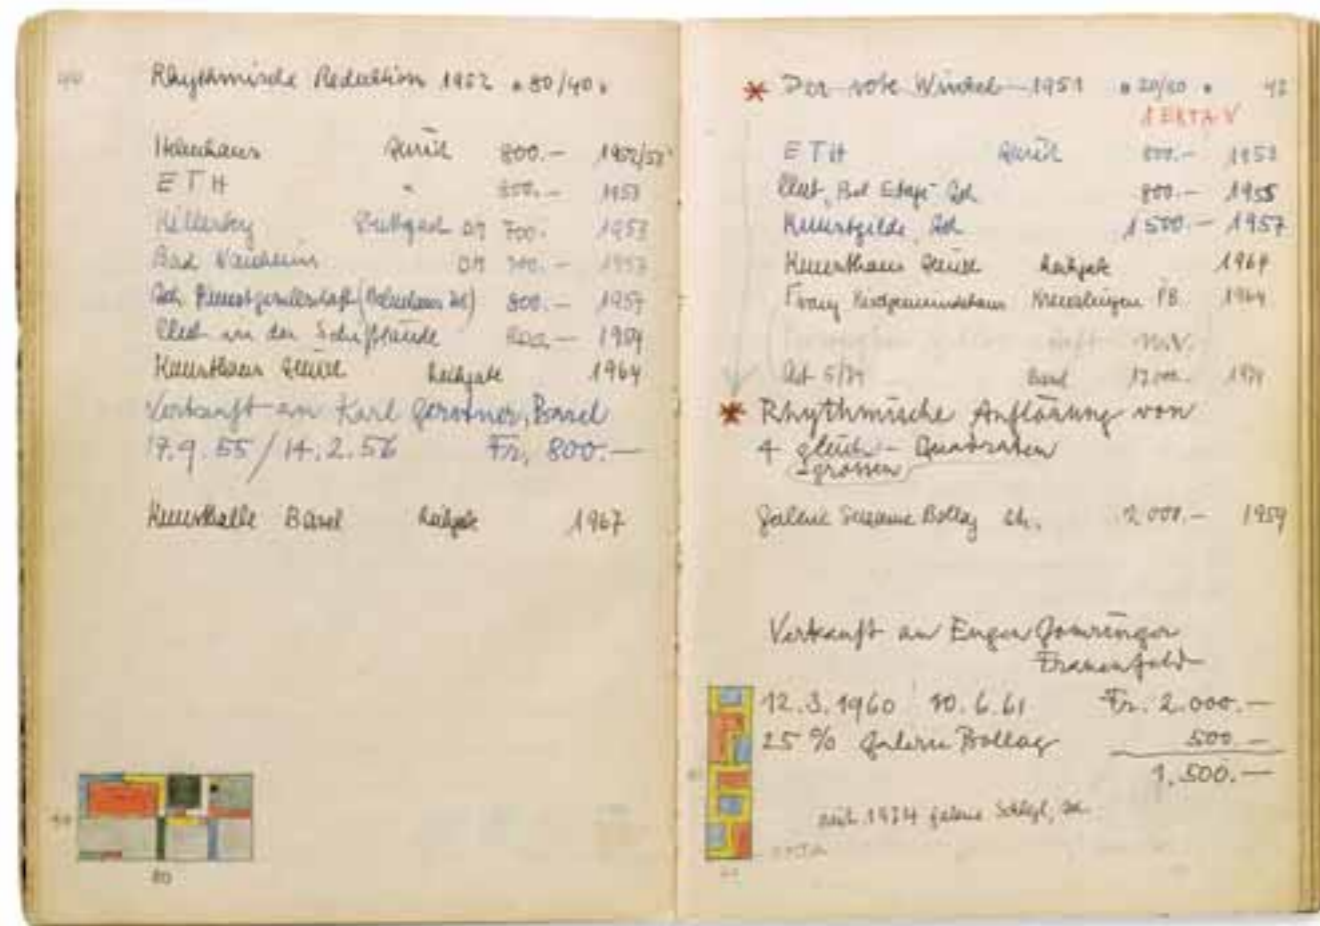 Rhythmische Reduktion 1952 • 80/40 •
Helmhaus Zürich 800.– 1952/53
ETH " 800.– 1953
Killesberg Stuttgart DM 700.– 1953
Bad Nauheim DM 700.– 1953
Zch. Kunstgesellschaft (Helmhaus Zch) 800.– 1957
Club in der Schifflände 1959
Kunsthaus Zürich Leihgabe 1964
Verkauft an Karl Gerstner, Basel
17.9.55/14.2.56 Fr. 800.—
Kunsthalle Basel Leihgabe 1967
40
80
* Der rote Winkel 1951 • 20/80 • 42
1 EKTA-V
ETH Zürich 800.– 1953
Club, Bel Etage Zch. 800.– 1955
Kunstgilde, Zch. 1500.– 1957
Kunsthaus Zürich Leihgabe 1964
Evang Kirchgemeindehaus Kreuzlingen 1964
Art 5/74 Basel 1974
* Rhythmische Auflösung von
4 gleich- Quadraten
grossen
Galerie Suzanne Bollag Zch. 2000.– 1959
Verkauft an Eugen Gomringer
Frauenfeld
12.3.1960 10.6.61 Fr. 2.000.—
25 % Galerie Bollag 500.—
1.500.—
seit 1974 Galerie Schlégl, Zch.